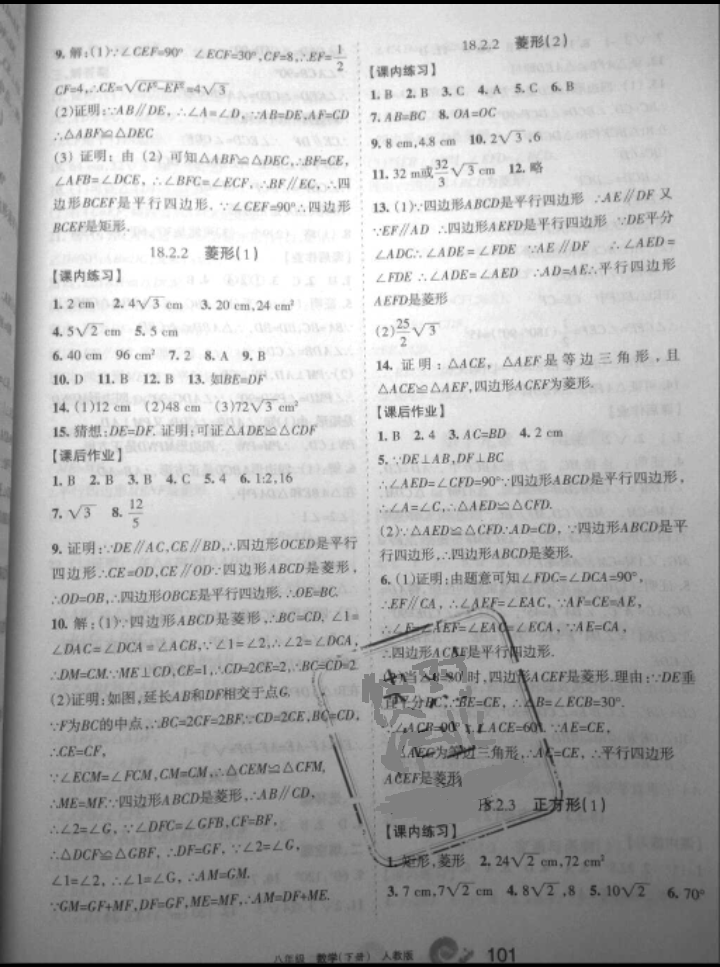 9. 解:(1)∵∠CEF=90° ∠ECF=30°,CF=8,∴EF=1/2
CF=4,∴CE=√(CF²-EF²)=4√3
(2)证明:∵AB∥DE,∴∠A=∠D,∵AB=DE,AF=CD
∴△ABF≌△DEC
(3) 证明: 由 (2) 可知△ABF≌△DEC,∴BF=CE,
∠AFB=∠DCE,∴∠BFC=∠ECF,∴BF∥EC,∴四
边形BCEF是平行四边形. ∵∠CEF=90°∴四边形
BCEF是矩形.
18.2.2 菱形(1)
【课内练习】
1. 2 cm 2. 4√3 cm 3. 20 cm,24 cm²
4. 5√2 cm 5. 5 cm
6. 40 cm 96 cm² 7. 2 8. A 9. B
10. D 11. B 12. B 13. 如BE=DF
14. (1)12 cm (2)48 cm (3)72√3 cm²
15. 猜想:DE=DF. 证明:可证△ADE≌△CDF
【课后作业】
1. B 2. B 3. B 4. C 5. 4 6. 1:2,16
7. √3 8. 12/5
9. 证明:∵DE∥AC,CE∥BD,∴四边形OCED是平行
四边形∴CE=OD,CE∥OD∵四边形ABCD是菱形,
∴OD=OB,∴四边形OBCE是平行四边形.∴OE=BC.
10. 解:(1)∵四边形ABCD是菱形,∴BC=CD, ∠1=
∠DAC=∠DCA=∠ACB,∵∠1=∠2,∴∠2=∠DCA,
∴DM=CM∵ME⊥CD,CE=1,∴CD=2CE=2,∴BC=CD=2
(2)证明:如图,延长AB和DF相交于点G.
∵F为BC的中点,∴BC=2CF=2BF∵CD=2CE,BC=CD,
∴CE=CF,
∵∠ECM=∠FCM,CM=CM,∴△CEM≌△CFM,
∴ME=MF∵四边形ABCD是菱形,∴AB∥CD,
∴∠2=∠G,∵∠DFC=∠GFB,CF=BF,
∴△DCF≌△GBF,∴DF=GF,∵∠2=∠G,
∠1=∠2,∴∠1=∠G,∴AM=GM.
∵GM=GF+MF,DF=GF,ME=MF,∴AM=DF+ME.
18.2.2 菱形(2)
【课内练习】
1. B 2. B 3. C 4. A 5. C 6. C
7. AB=BC 8. OA=OC
9. 8 cm,4.8 cm 10. 2√3,6
11. 32 m或32/3√3 cm 12. 略
13. (1)∵四边形ABCD是平行四边形 ∴AE∥DF 又
∵EF∥AD ∴四边形AEFD是平行四边形 ∵DE平分
∠ADC∴∠ADE=∠FDE ∵AE∥DF ∴∠AED=
∠FDE ∴∠ADE=∠AED ∴AD=AE∴平行四边形
AEFD是菱形
(2)25/2√3
14. 证明:△ACE, △AEF是等边三角形,且
△ACE≌△AEF,四边形ACEF为菱形.
【课后作业】
1. B 2. 4 3. AC=BD 4. 2 cm
5. ∵DE⊥AB,DF⊥BC
∴∠AED=∠CFD=90°∵四边形ABCD是平行四边形,
∴∠A=∠C,∴△AED≌△CFD.
(2)∵△AED≌△CFD∴AD=CD, ∵四边形ABCD是平
行四边形,∴四边形ABCD是菱形.
6. (1)证明:由题意可知∠FDC=∠DCA=90°,
∴EF∥CA,∴∠AEF=∠EAC,∵AF=CE=AE,
∴∠F=∠AEF=∠EAC=∠ECA,∵AE=CA,
∴四边形ACEF是平行四边形.
当∠B=30°时,四边形ACEF是菱形.理由:∵DE垂
平分BC,∴BE=CE,∴∠B=∠ECB=30°.
∵∠ACB=90° ∴∠ACE=60°.∵AE=CE,
∴△AEC为等边三角形,∴AC=CE,∴平行四边形
ACEF是菱形
18.2.3 正方形(1)
【课内练习】
1. 矩形,菱形 2. 24√2 cm,72 cm²
3. 7 cm,7√2 cm 4. 8√2,8 5. 10√2 6. 70°
八年级 数学(下册) 人教版 101